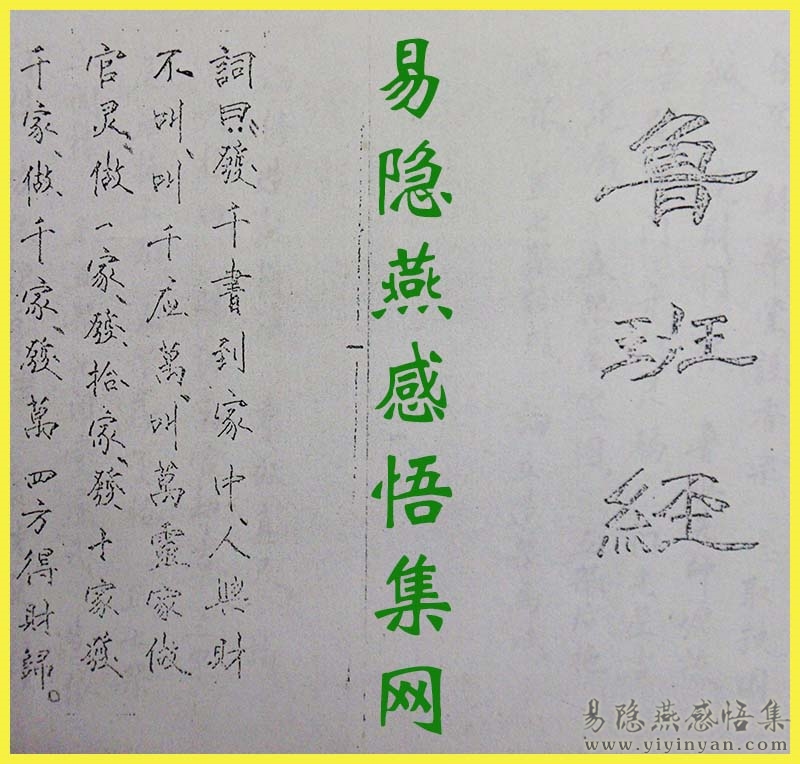 魯班經
易隐燕感悟集网
詞發千書到家中、人興財
不叫、叫千应萬、叫萬靈家做
官灵、做一家、發拾家、發十家發
千家、做千家、發萬四方得財歸。
易隐燕感悟集
www.yiyinyan.com